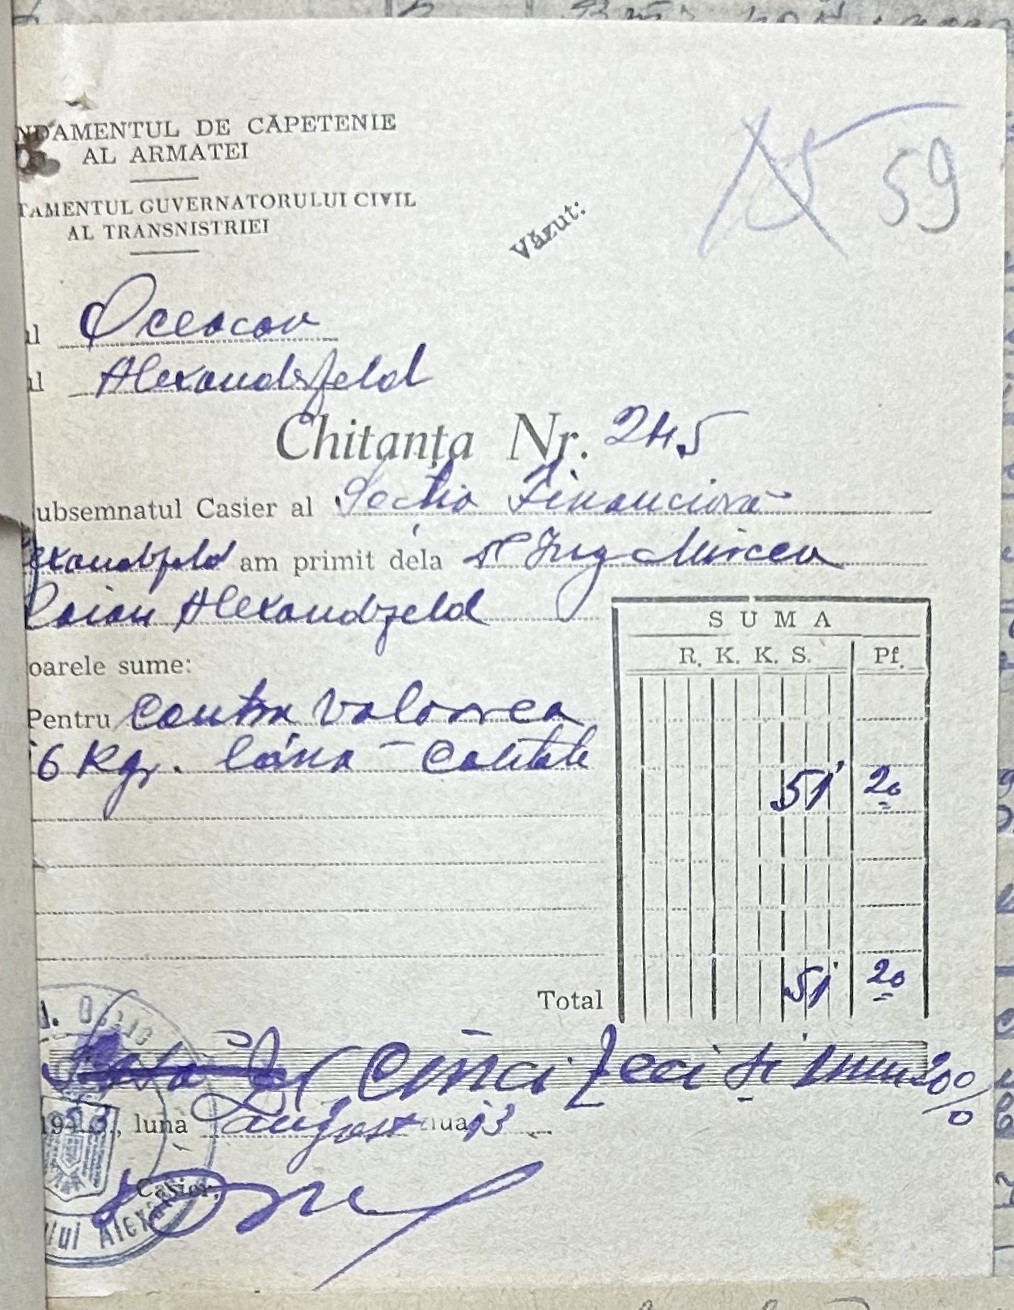 NDAMENTUL DE CĂPETENIE
AL ARMATEI
TAMENTUL GUVERNATORULUI CIVIL
AL TRANSNISTRIEI
Văzut:
59
ul Oceacov
ul Alexandsfeld
Chitanța Nr. 245
ubsemnatul Casier al Secția Financiară
exandsfeld am primit dela Ing Mircea
Alexandsfeld
oarele sume:
SUMA
R. K. K. S. Pf.
Pentru contra valoarea
6 Kgr. lână - Calitate
51 20
Total 51 20
Cinci zeci și unu 20/0
194 , luna August ziua 13
Casier,
lui Alexan